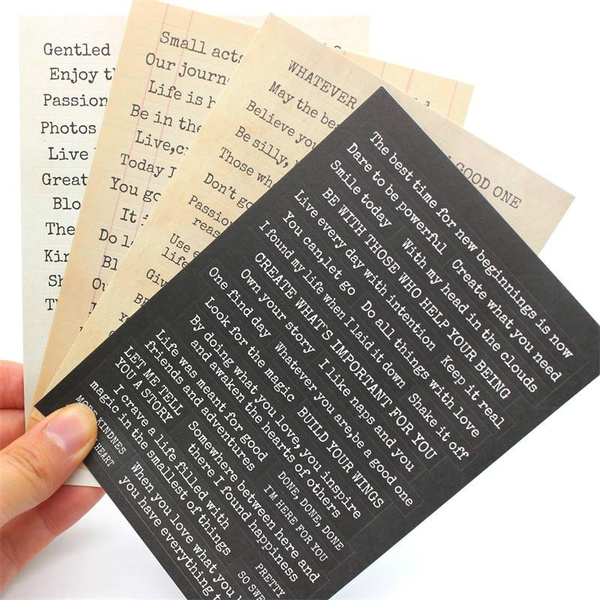 Gentled
Enjoy
Passion
Photos
Live
Great
Blo
The
Kin
Sh
Small acts
Our journ
Life is h
Be in the
Live,
Today
You go
It i
Do l
Bl
Giv
WHATEVER
GOOD ONE
May the be
Believe you
Be silly,
Those wh
Don't go
Passion
reas
Use
life
The best time for new beginnings is now
Dare to be powerful
Create what you need
Smile today
With my head in the clouds
BE WITH THOSE WHO HELP YOUR BEING
Live every day with intention
Keep it real
You can,let go
Do all things with love
I found my life when I laid it down
Shake it off
CREATE WHAT'S IMPORTANT FOR YOU
Own your story
I like naps and you
One find day
Whatever you are,be a good one
Look for the magic
BUILD YOUR WINGS
by doing what you love,you inspire
and awaken the hearts of others
Life was meant for good
friends and adventures
DONE, DONE, DONE
I'M HERE FOR YOU
LET ME TELL
YOU A STORY
Somewhere between here and
there I found happiness
I crave a life filled with
magic in the smallest of things
PRETTY
SO SWE
HEART
When you love what you
you have everything